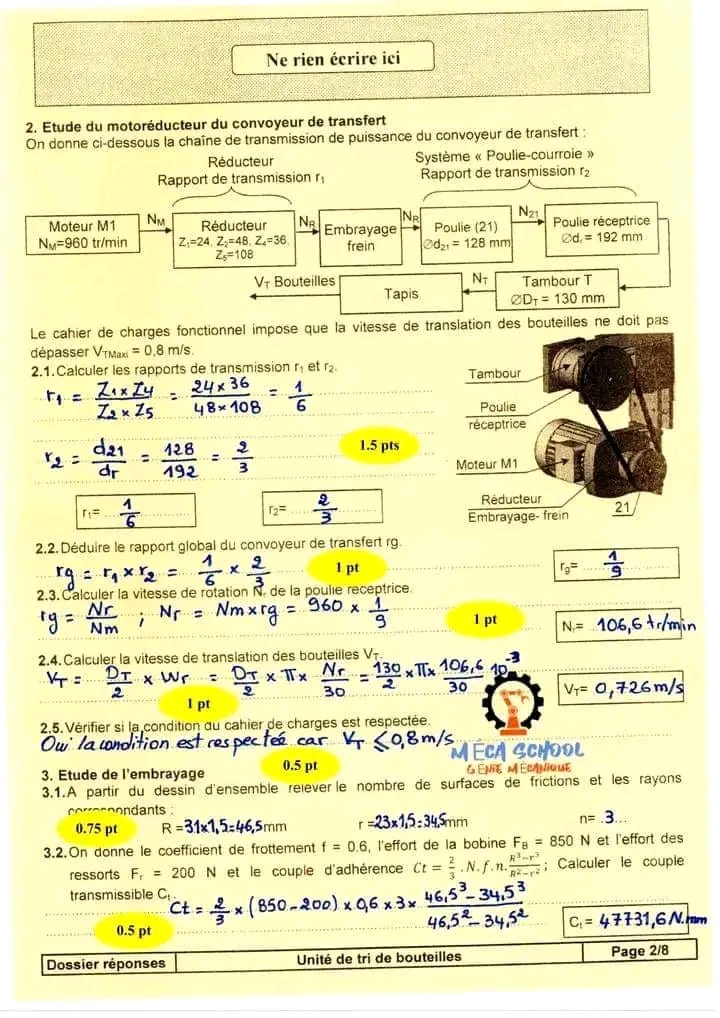 Ne rien écrire ici
2. Etude du motoréducteur du convoyeur de transfert
On donne ci-dessous la chaîne de transmission de puissance du convoyeur de transfert :
Réducteur
Rapport de transmission r₁
Système « Poulie-courroie »
Rapport de transmission r₂
Moteur M1
N_M=960 tr/min
N_M
Réducteur
Z₁=24, Z₂=48, Z₄=36,
Z₅=108
N_R
Embrayage
frein
N_R
Poulie (21)
∅d₂₁ = 128 mm
N₂₁
Poulie réceptrice
∅dᵣ = 192 mm
V_T Bouteilles
Tapis
N_T
Tambour T
∅D_T = 130 mm
Le cahier de charges fonctionnel impose que la vitesse de translation des bouteilles ne doit pas
dépasser V_TMaxi = 0,8 m/s.
2.1. Calculer les rapports de transmission r₁ et r₂.
r₁ = Z₁ x Z₄ / Z₂ x Z₅ = 24 x 36 / 48 x 108 = 1/6
r₂ = d₂₁/dr = 128/192 = 2/3
1.5 pts
r₁= 1/6
r₂= 2/3
Tambour
Poulie
réceptrice
Moteur M1
Réducteur
Embrayage- frein
21
2.2. Déduire le rapport global du convoyeur de transfert rg.
rg = r₁ x r₂ = 1/6 x 2/3
1 pt
r_g= 1/9
2.3. Calculer la vitesse de rotation Nᵣ de la poulie réceptrice.
rg = Nr/Nm ; Nr = Nm x rg = 960 x 1/9
1 pt
Nᵣ= 106,6 tr/min
2.4. Calculer la vitesse de translation des bouteilles V_T.
V_T = D_T/2 x Wr = D_T/2 x π x Nr/30 = 130/2 x π x 106,6/30 10⁻³
1 pt
V_T= 0,726 m/s
2.5. Vérifier si la condition du cahier de charges est respectée.
Oui la condition est respectée car V_T ≤ 0,8 m/s
0.5 pt
MÉCA SCHOOL
GÉNIE MÉCANIQUE
3. Etude de l'embrayage
3.1. A partir du dessin d'ensemble relever le nombre de surfaces de frictions et les rayons
correspondants :
0.75 pt
R = 31x1,5=46,5 mm
r = 23x1,5=34,5 mm
n= .3...
3.2. On donne le coefficient de frottement f = 0.6, l'effort de la bobine F_B = 850 N et l'effort des
ressorts Fᵣ = 200 N et le couple d'adhérence Ct = 2/3 .N.f.n. R³−r³/R²−r² ; Calculer le couple
transmissible Cₜ.
Ct = 2/3 x (850-200) x 0,6 x 3 x 46,5³ - 34,5³ / 46,5² - 34,5²
0.5 pt
Cₜ= 47731,6 N.mm
Dossier réponses
Unité de tri de bouteilles
Page 2/8